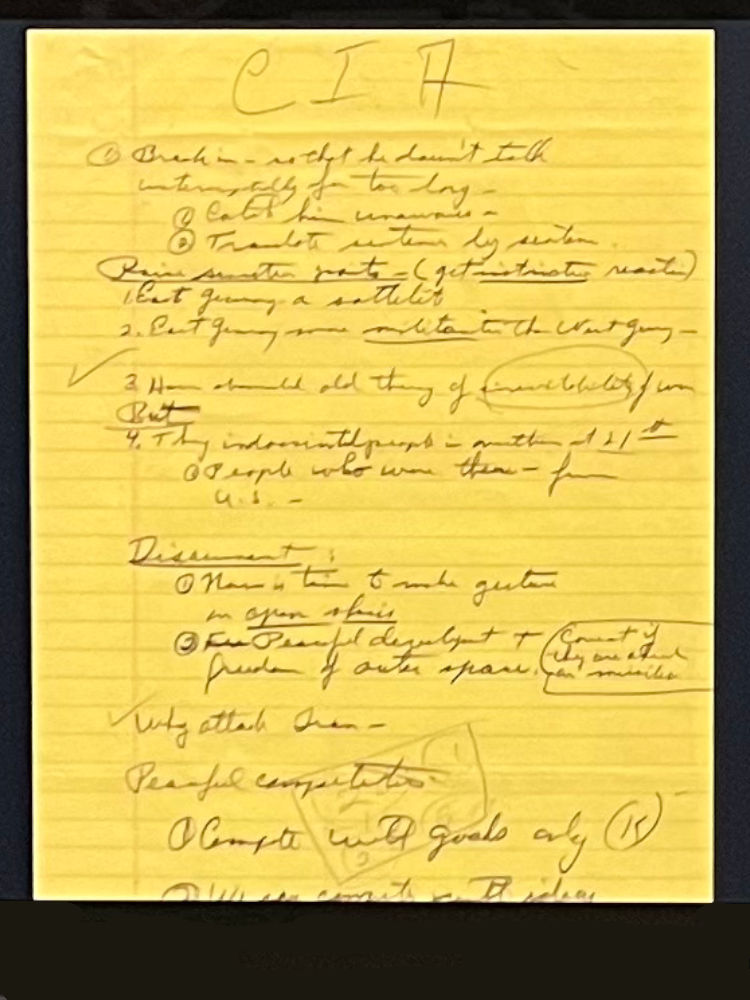 CIA
① Break in - so that he doesn't talk
uninterruptedly for too long -
① Catch him unawares -
② Translate sentence by sentence.
Raise sensitive points - (get instinctive reaction)
1. East Germany a sattelite
2. East Germany more militaristic than West Germany -
3. Have abandoned old theory of inevitability of war
But
4. They indoctrinated people in at 21st
① People who were there - from
U.S. -
Disarmament:
① Now is time to make gesture
on open skies
② Peaceful development +
freedom of outer space.
(Consent if
they are ahead
on missiles
Why attack Iran -
Peaceful competition -
① Compete with goods only (15)
compete with ideas